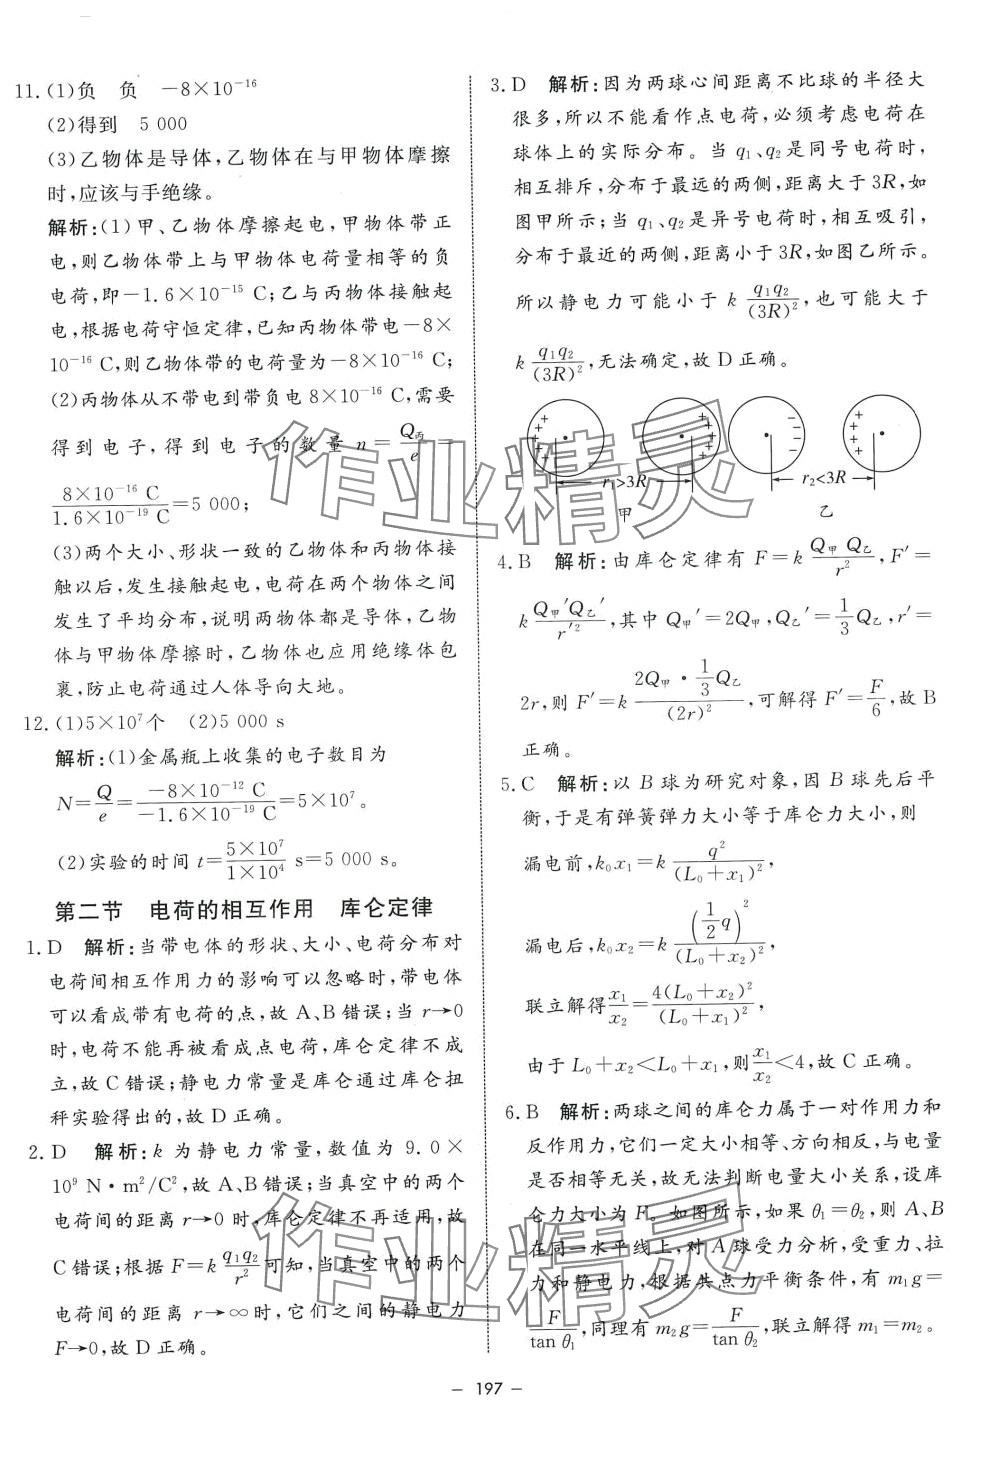 11.(1)负　负　−8×10⁻¹⁶
(2)得到　5 000
(3)乙物体是导体,乙物体在与甲物体摩擦
时,应该与手绝缘。
解析:(1)甲、乙物体摩擦起电,甲物体带正
电,则乙物体带上与甲物体电荷量相等的负
电荷,即−1.6×10⁻¹⁵ C;乙与丙物体接触起
电,根据电荷守恒定律,已知丙物体带电−8×
10⁻¹⁶ C,则乙物体带的电荷量为−8×10⁻¹⁶ C;
(2)丙物体从不带电到带负电 8×10⁻¹⁶ C,需要
得到电子,得到电子的数量 n=Q丙/e=
(8×10⁻¹⁶ C)/(1.6×10⁻¹⁹ C)=5 000;
(3)两个大小、形状一致的乙物体和丙物体接
触以后,发生接触起电,电荷在两个物体之间
发生了平均分布,说明两物体都是导体,乙物
体与甲物体摩擦时,乙物体也应用绝缘体包
裹,防止电荷通过人体导向大地。
12.(1)5×10⁷个　(2)5 000 s
解析:(1)金属瓶上收集的电子数目为
N=Q/e=(−8×10⁻¹² C)/(−1.6×10⁻¹⁹ C)=5×10⁷。
(2)实验的时间 t=(5×10⁷)/(1×10⁴) s=5 000 s。
第二节　电荷的相互作用　库仑定律
1.D　解析:当带电体的形状、大小、电荷分布对
电荷间相互作用力的影响可以忽略时,带电体
可以看成带有电荷的点,故 A、B 错误;当 r→0
时,电荷不能再被看成点电荷,库仑定律不成
立,故 C 错误;静电力常量是库仑通过库仑扭
秤实验得出的,故 D 正确。
2.D　解析:k 为静电力常量,数值为 9.0×
10⁹ N·m²/C²,故 A、B 错误;当真空中的两个
电荷间的距离 r→0 时,库仑定律不再适用,故
C 错误;根据 F=k q₁q₂/r² 可知,当真空中的两个
电荷间的距离 r→∞时,它们之间的静电力
F→0,故 D 正确。
3.D　解析:因为两球心间距离不比球的半径大
很多,所以不能看作点电荷,必须考虑电荷在
球体上的实际分布。当 q₁、q₂ 是同号电荷时,
相互排斥,分布于最远的两侧,距离大于 3R,如
图甲所示;当 q₁、q₂ 是异号电荷时,相互吸引,
分布于最近的两侧,距离小于 3R,如图乙所示。
所以静电力可能小于 k q₁q₂/(3R)²,也可能大于
k q₁q₂/(3R)²,无法确定,故 D 正确。
r₁>3R　r₂<3R
甲　乙
4.B　解析:由库仑定律有 F=k Q甲Q乙/r²,F′=
k Q甲′Q乙′/r′²,其中 Q甲′=2Q甲,Q乙′=1/3 Q乙,r′=
2r,则 F′=k (2Q甲·1/3 Q乙)/(2r)²,可解得 F′=F/6,故 B
正确。
5.C　解析:以 B 球为研究对象,因 B 球先后平
衡,于是有弹簧弹力大小等于库仑力大小,则
漏电前,k₀x₁=k q²/(L₀+x₁)²,
漏电后,k₀x₂=k (1/2 q)²/(L₀+x₂)²,
联立解得 x₁/x₂=4(L₀+x₂)²/(L₀+x₁)²,
由于 L₀+x₂<L₀+x₁,则 x₁/x₂<4,故 C 正确。
6.B　解析:两球之间的库仑力属于一对作用力和
反作用力,它们一定大小相等、方向相反,与电量
是否相等无关,故无法判断电量大小关系,设库
仑力大小为 F。如图所示,如果 θ₁=θ₂,则 A、B
在同一水平线上,对 A 球受力分析,受重力、拉
力和静电力,根据共点力平衡条件,有 m₁g=
F/tan θ₁,同理有 m₂g=F/tan θ₂,联立解得 m₁=m₂。
– 197 –
作业精灵
作业精灵